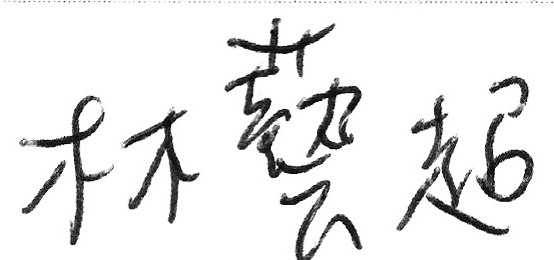 林藝超